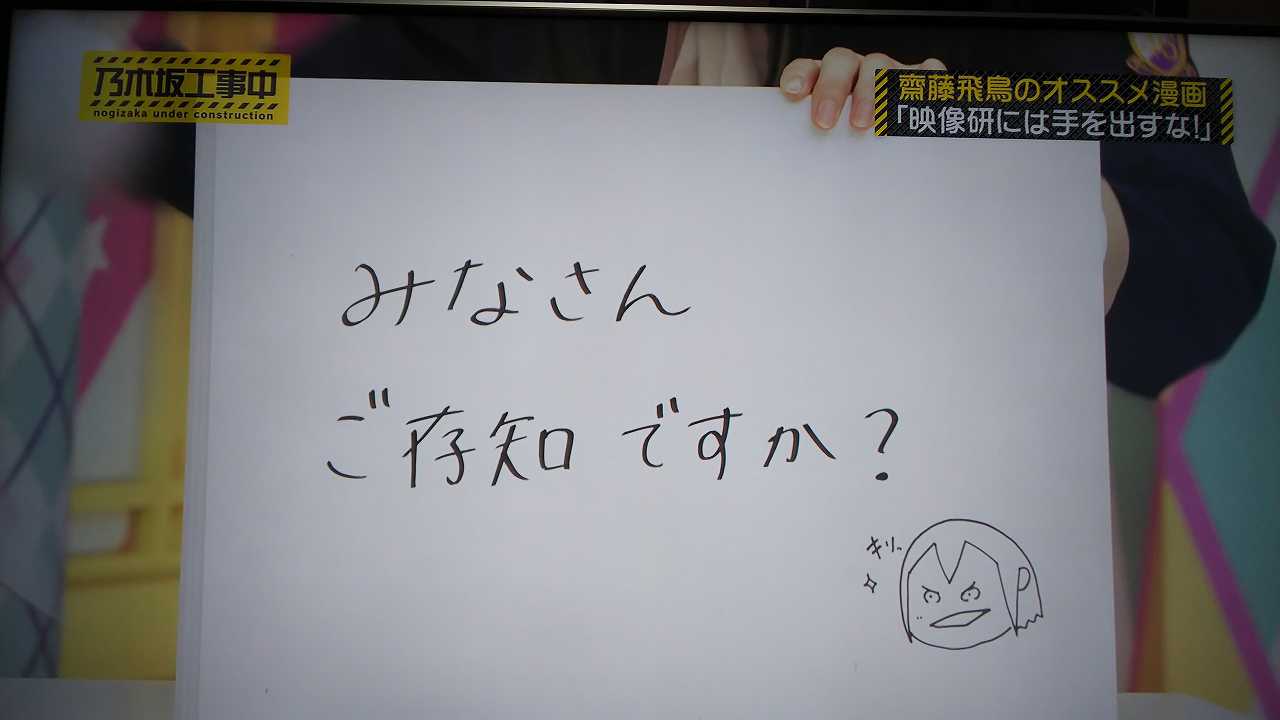 乃木坂工事中
nogizaka under construction
齋藤飛鳥のオススメ漫画
「映像研には手を出すな!」
みなさん
ご存知ですか?
キリッ